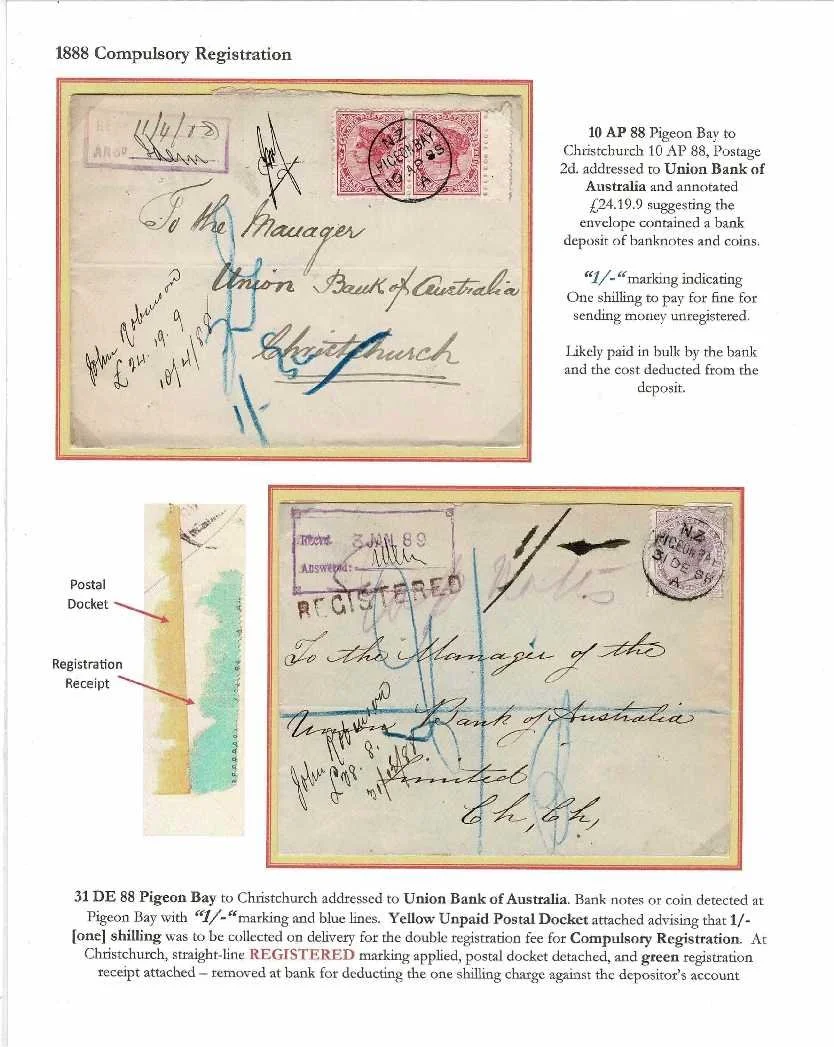 1888 Compulsory Registration
11/4/88
N.Z.
PIGEON BAY
10 AP 88
A
To the Manager
Union Bank of Australia
Christchurch
John Robinson
£ 24. 19. 9
10/4/88
1/-
10 AP 88 Pigeon Bay to
Christchurch 10 AP 88, Postage
2d. addressed to Union Bank of
Australia and annotated
£24.19.9 suggesting the
envelope contained a bank
deposit of banknotes and coins.
“1/-“ marking indicating
One shilling to pay for fine for
sending money unregistered.
Likely paid in bulk by the bank
and the cost deducted from the
deposit.
Postal
Docket
Registration
Receipt
Recvd. 3 JAN 89
Answered:
REGISTERED
1/-
N.Z.
PIGEON BAY
31 DE 88
A
To the Manager of the
Union Bank of Australia
Limited
Ch, Ch,
John Robinson
31 DE 88 Pigeon Bay to Christchurch addressed to Union Bank of Australia. Bank notes or coin detected at
Pigeon Bay with “1/-“ marking and blue lines. Yellow Unpaid Postal Docket attached advising that 1/-
[one] shilling was to be collected on delivery for the double registration fee for Compulsory Registration. At
Christchurch, straight-line REGISTERED marking applied, postal docket detached, and green registration
receipt attached – removed at bank for deducting the one shilling charge against the depositor's account